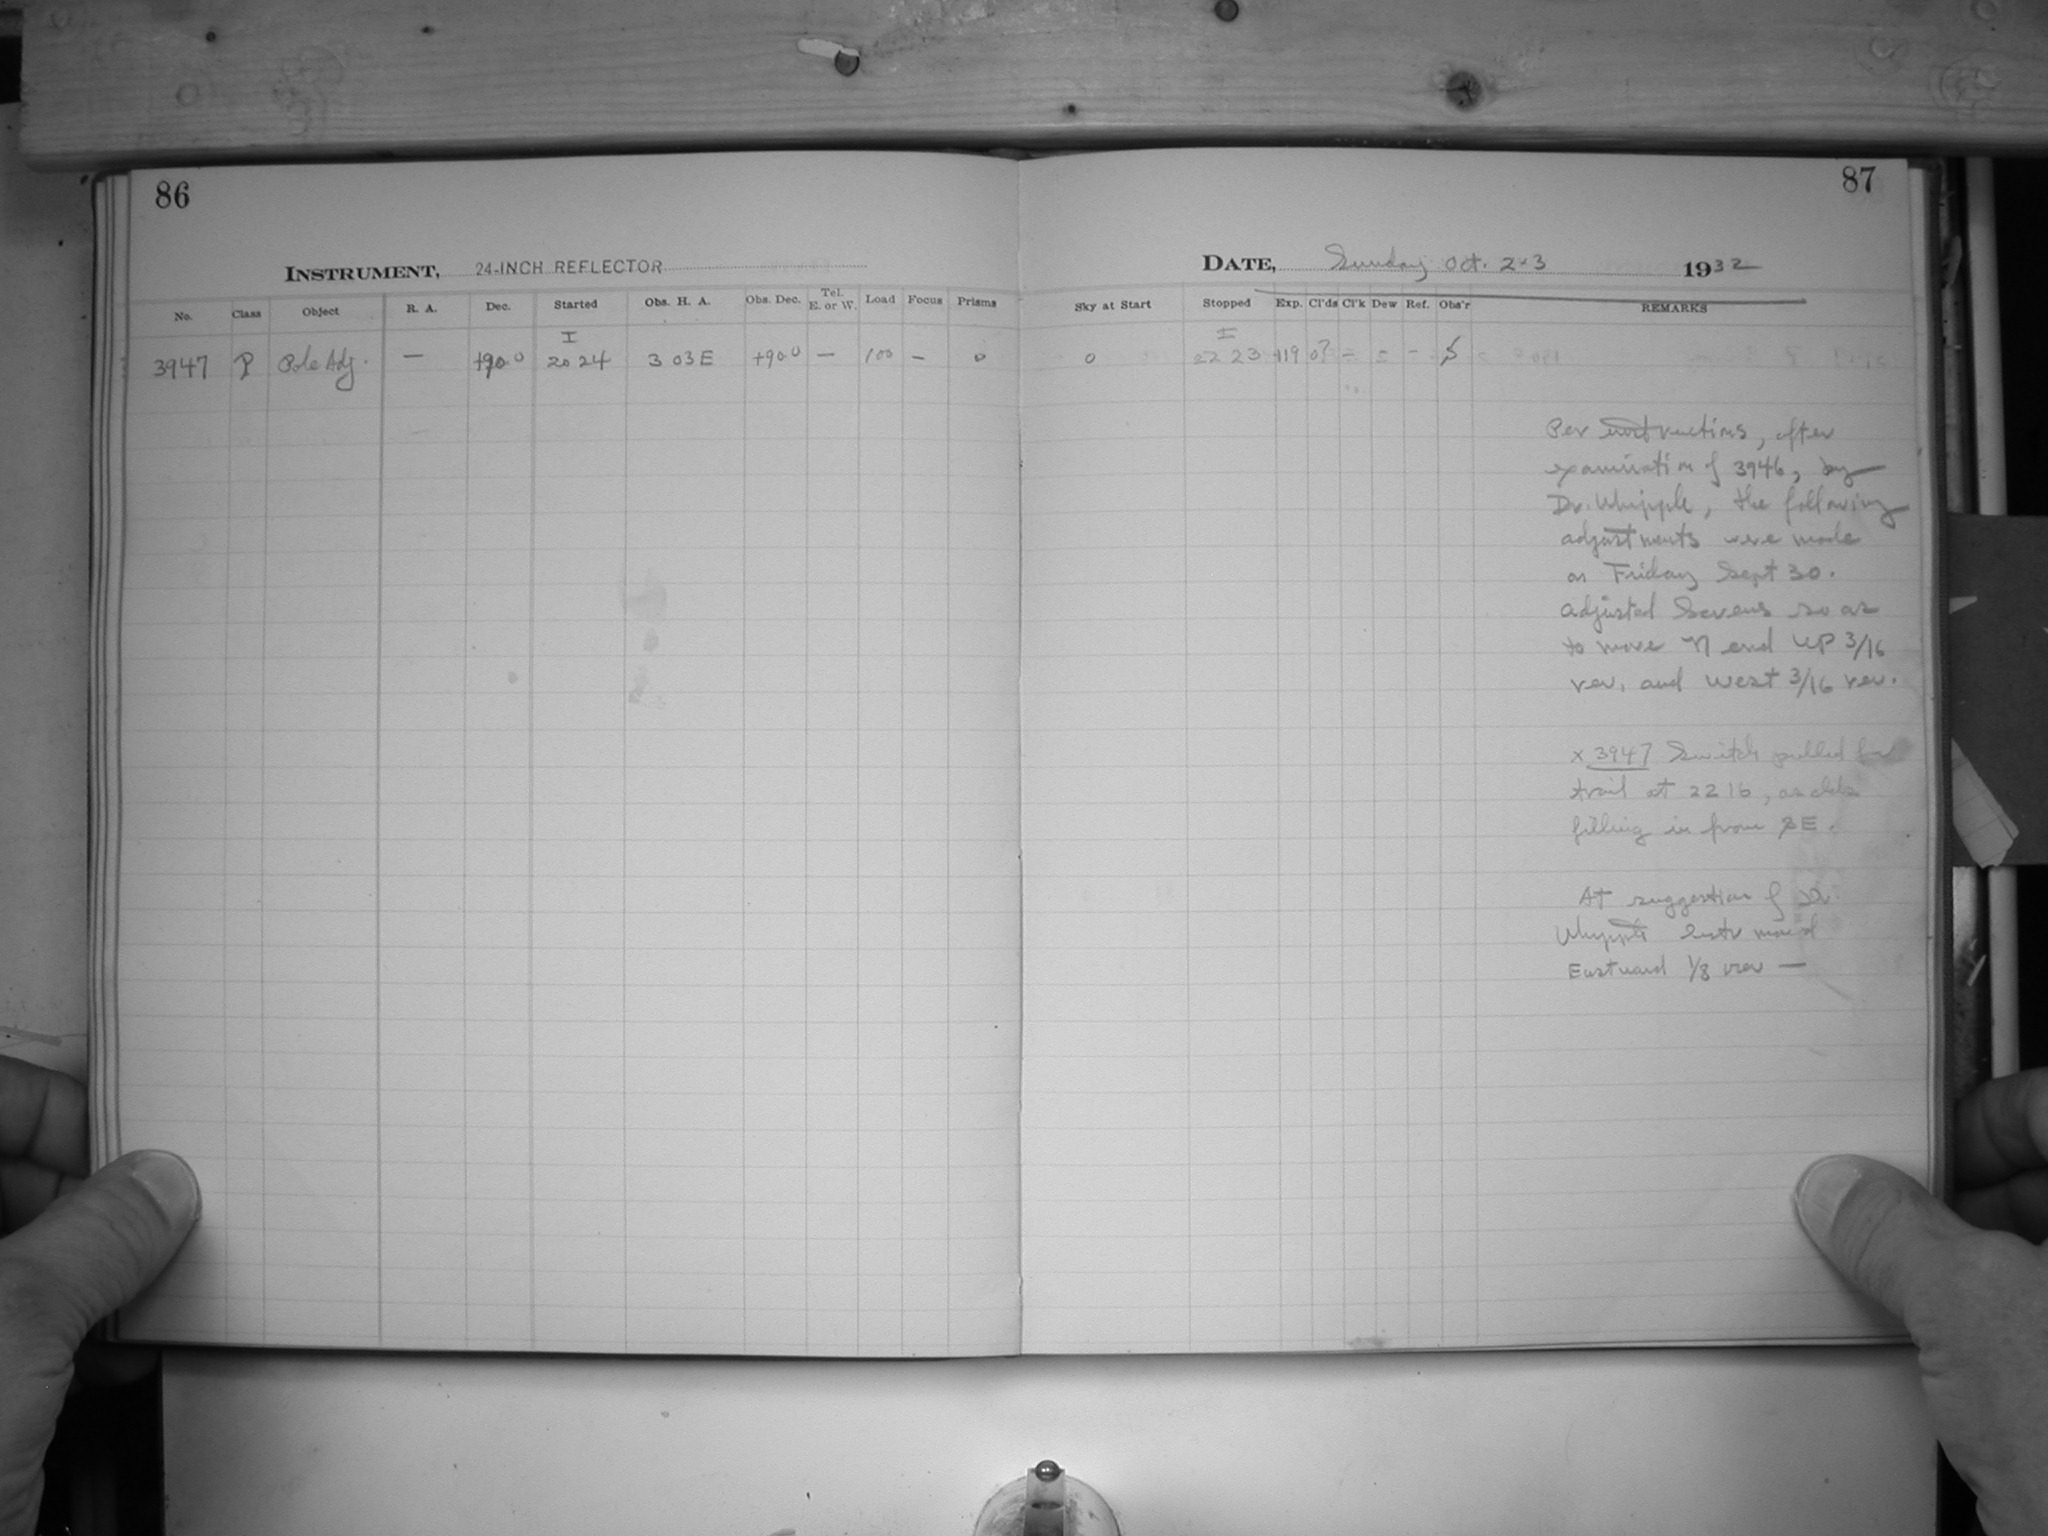 86
INSTRUMENT, 24-INCH REFLECTOR
No. Class Object R. A. Dec. Started Obs. H. A. Obs. Dec. Tel. E. or W. Load Focus Prisms
I
3947 P Pole Adj. — +90.0 20 24 3 03E +90.0 — 100 — 0
87
DATE, Sunday Oct. 2-3 1932
Sky at Start Stopped Exp. Cl'ds Cl'k Dew Ref. Obs'r REMARKS
I
0 22 23 119 0? = = - S
Per instructions, after
examination of 3946, by
Dr. Whipple, the following
adjustments were made
on Friday Sept 30.
adjusted Screws so as
to move N end UP 3/16
rev. and West 3/16 rev.
x 3947 Switch pulled for
trail at 22 16, as clds
filling in from SE.
At suggestion of Dr.
Whipple Instr moved
Eastward 1/8 rev —